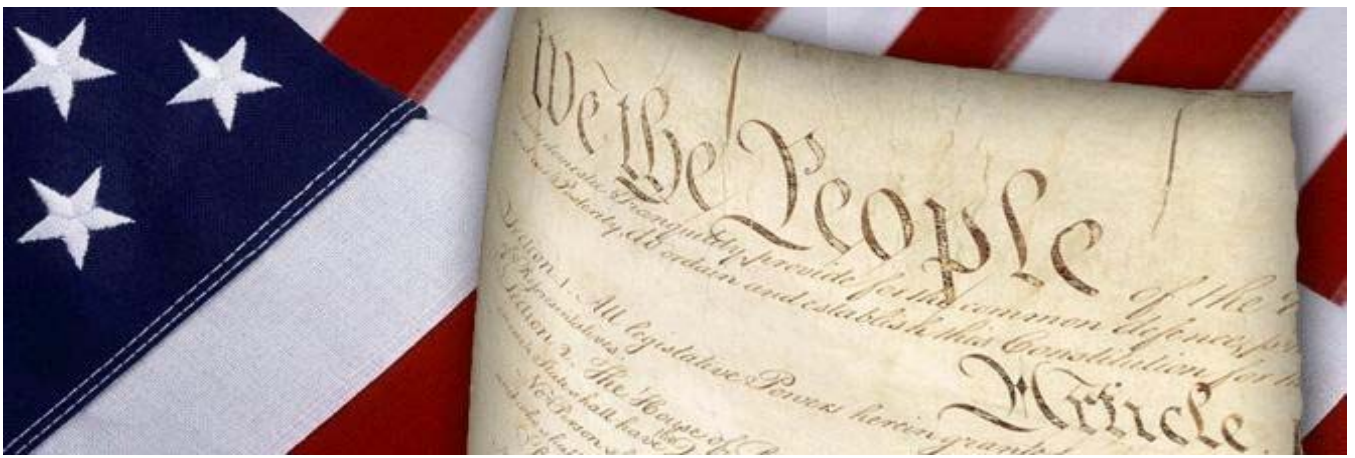 We the People of the
domestic Tranquility, provide for the common defence,
Posterity, do ordain and establish this Constitution for
Article
Section 1. All legislative Powers herein
Representatives.
Section 2. The House of
shall have
No Person